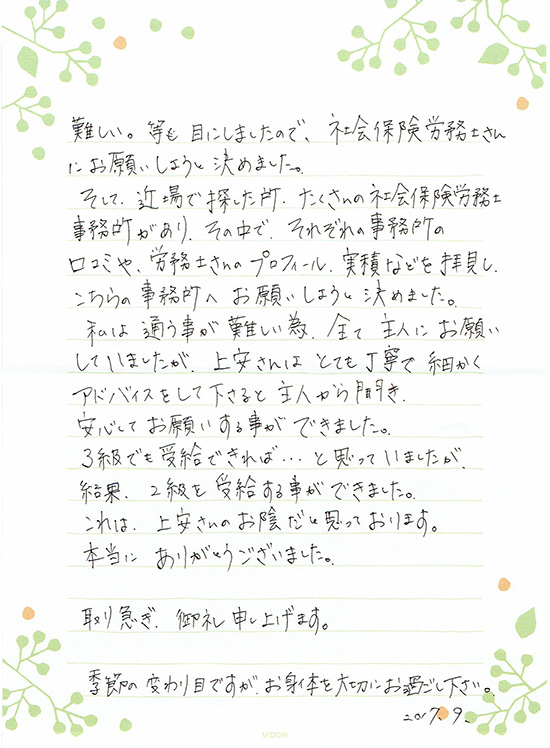 難しい。等も目にしましたので、社会保険労務士さん
にお願いしようと決めました。
そして、近場で探した所、たくさんの社会保険労務士
事務所があり、その中で、それぞれの事務所の
口コミや、労務士さんのプロフィール、実積などを拝見し、
こちらの事務所へお願いしようと決めました。
私は通う事が難しい為、全て主人にお願い
していましたが、上安さんはとても丁寧で細かく
アドバイスをして下さると主人から聞き、
安心してお願いする事ができました。
3級でも受給できれば…と思っていましたが、
結果、2級を受給する事ができました。
これは、上安さんのお陰だと思っております。
本当にありがとうございました。
取り急ぎ、御礼申し上げます。
季節の変わり目ですが、お身体を大切にお過ごし下さい。
2017.9.
MIDORI